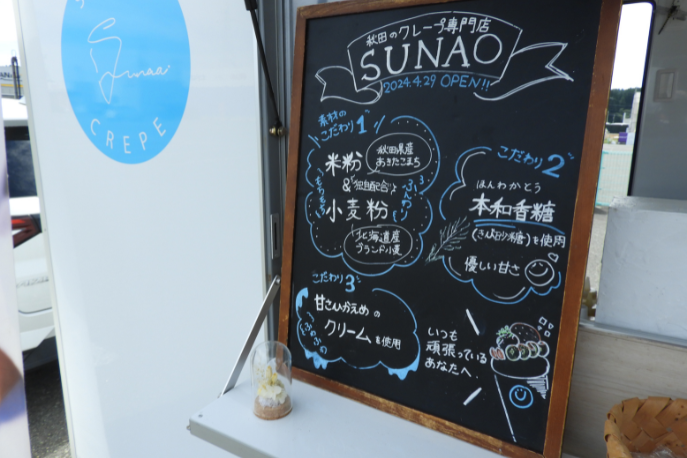 Sunao
CREPE
秋田のクレープ専門店
SUNAO
2024.4.29 OPEN!!
素材の
こだわり1
米粉
秋田県産
あきたこまち
&
独自配合♪
小麦粉
もちもち
ふんわり
北海道産
ブランド小麦
こだわり2
ほんわかとう
本和香糖
(さとうきび糖)を使用
優しい甘さ
こだわり3
甘さひかえめの
クリームを使用
いつも
頑張っている
あなたへ